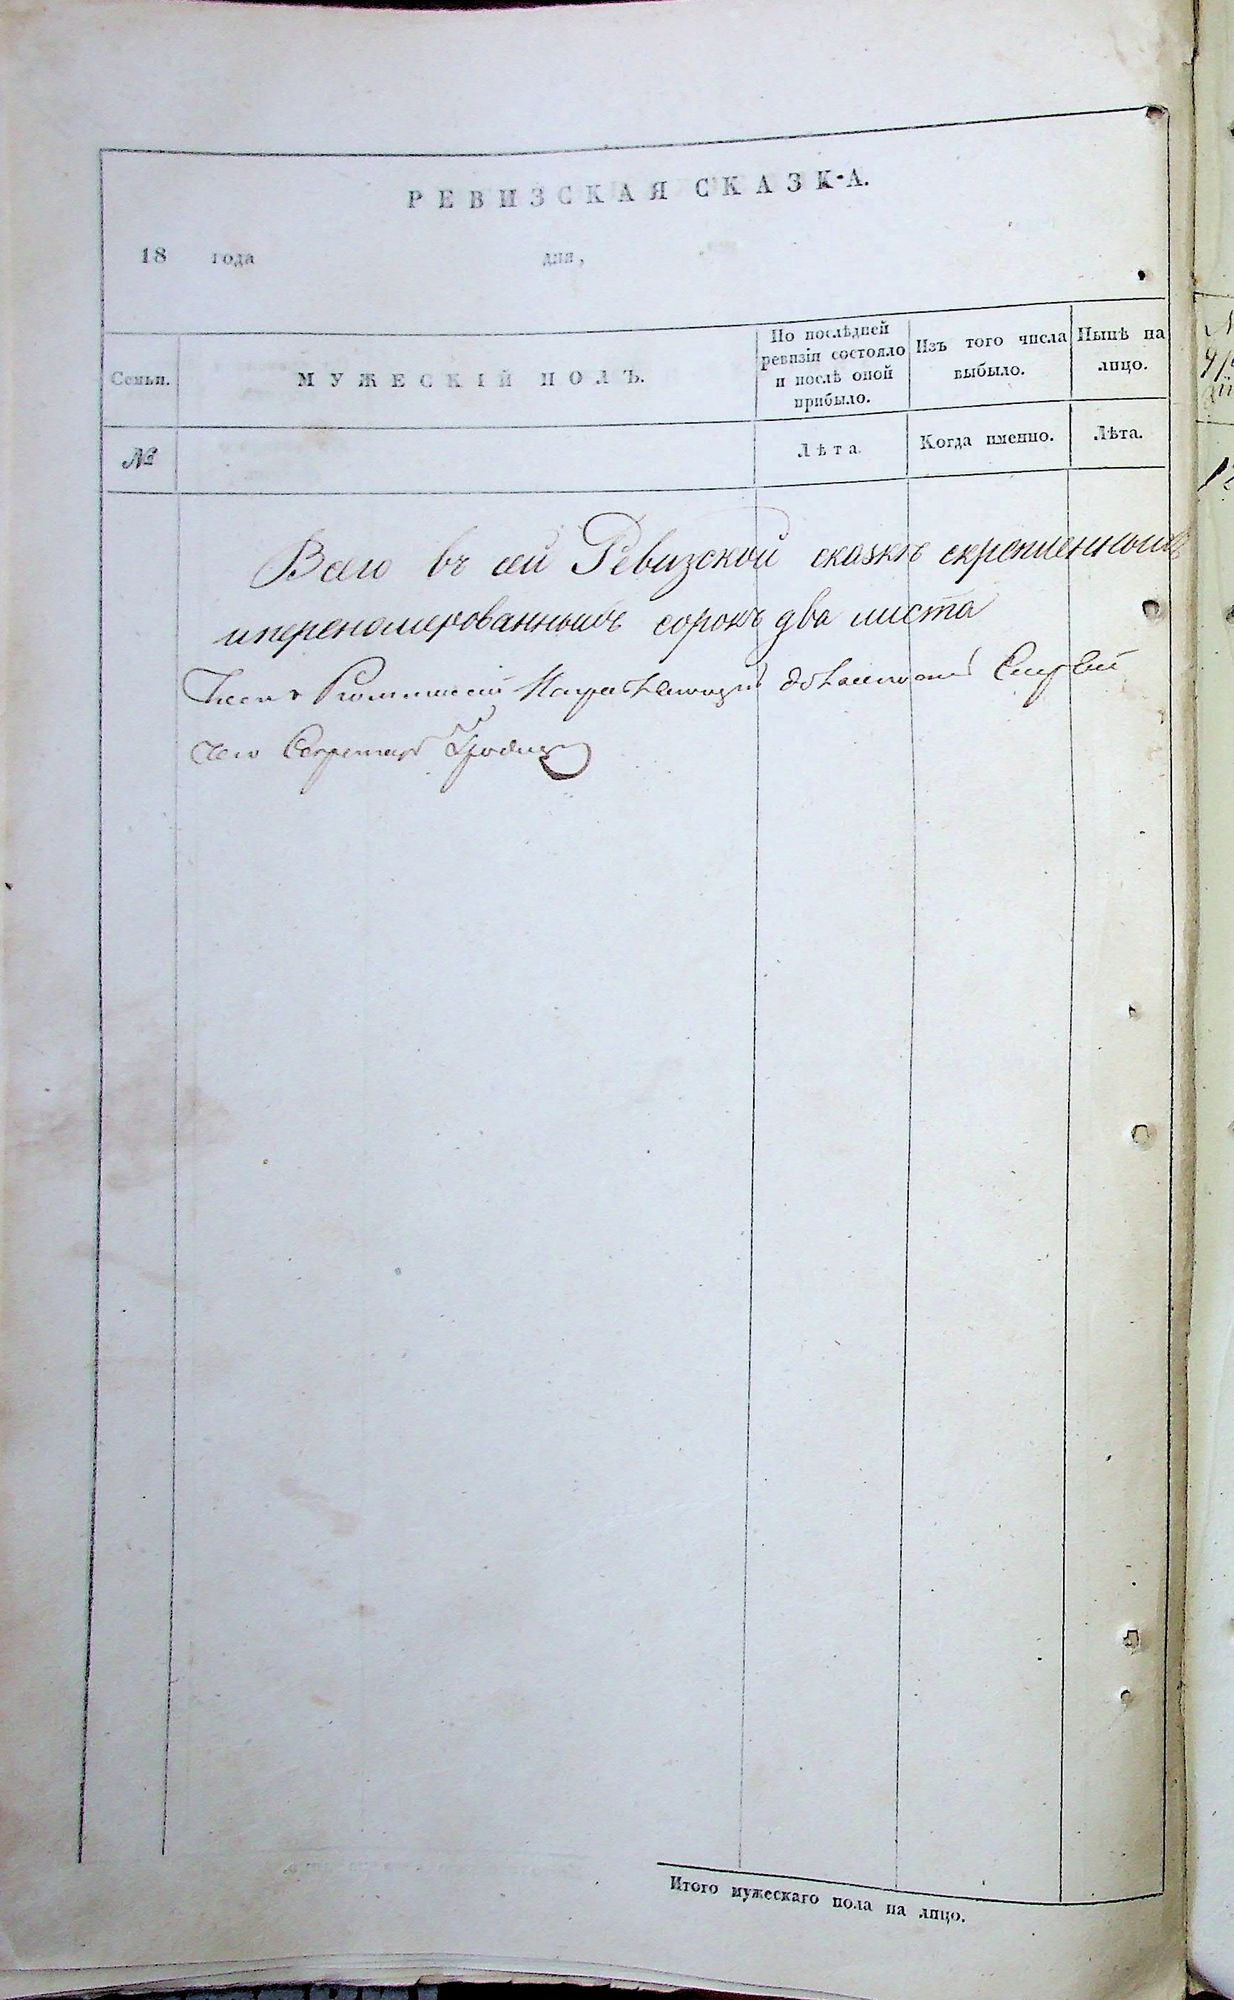 РЕВИЗСКАЯ СКАЗКА.
18 года дня,
Семьи.
МУЖЕСКІЙ ПОЛЪ.
По послѣдней
ревизіи состояло
и послѣ оной
прибыло.
Изъ того числа
выбыло.
Нынѣ на
лицо.
№
Лѣта.
Когда именно.
Лѣта.
Всего въ сей Ревизской сказкѣ скрепленныхъ
и переномерованныхъ сорокъ два листа
Членъ Коммисіи
Секретарь
Итого мужескаго пола на лицо.